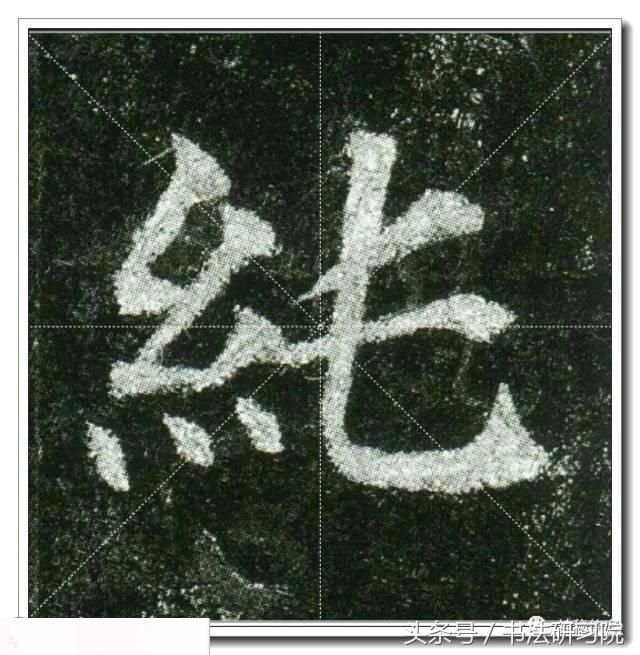 純
头条号 / 书法研习院